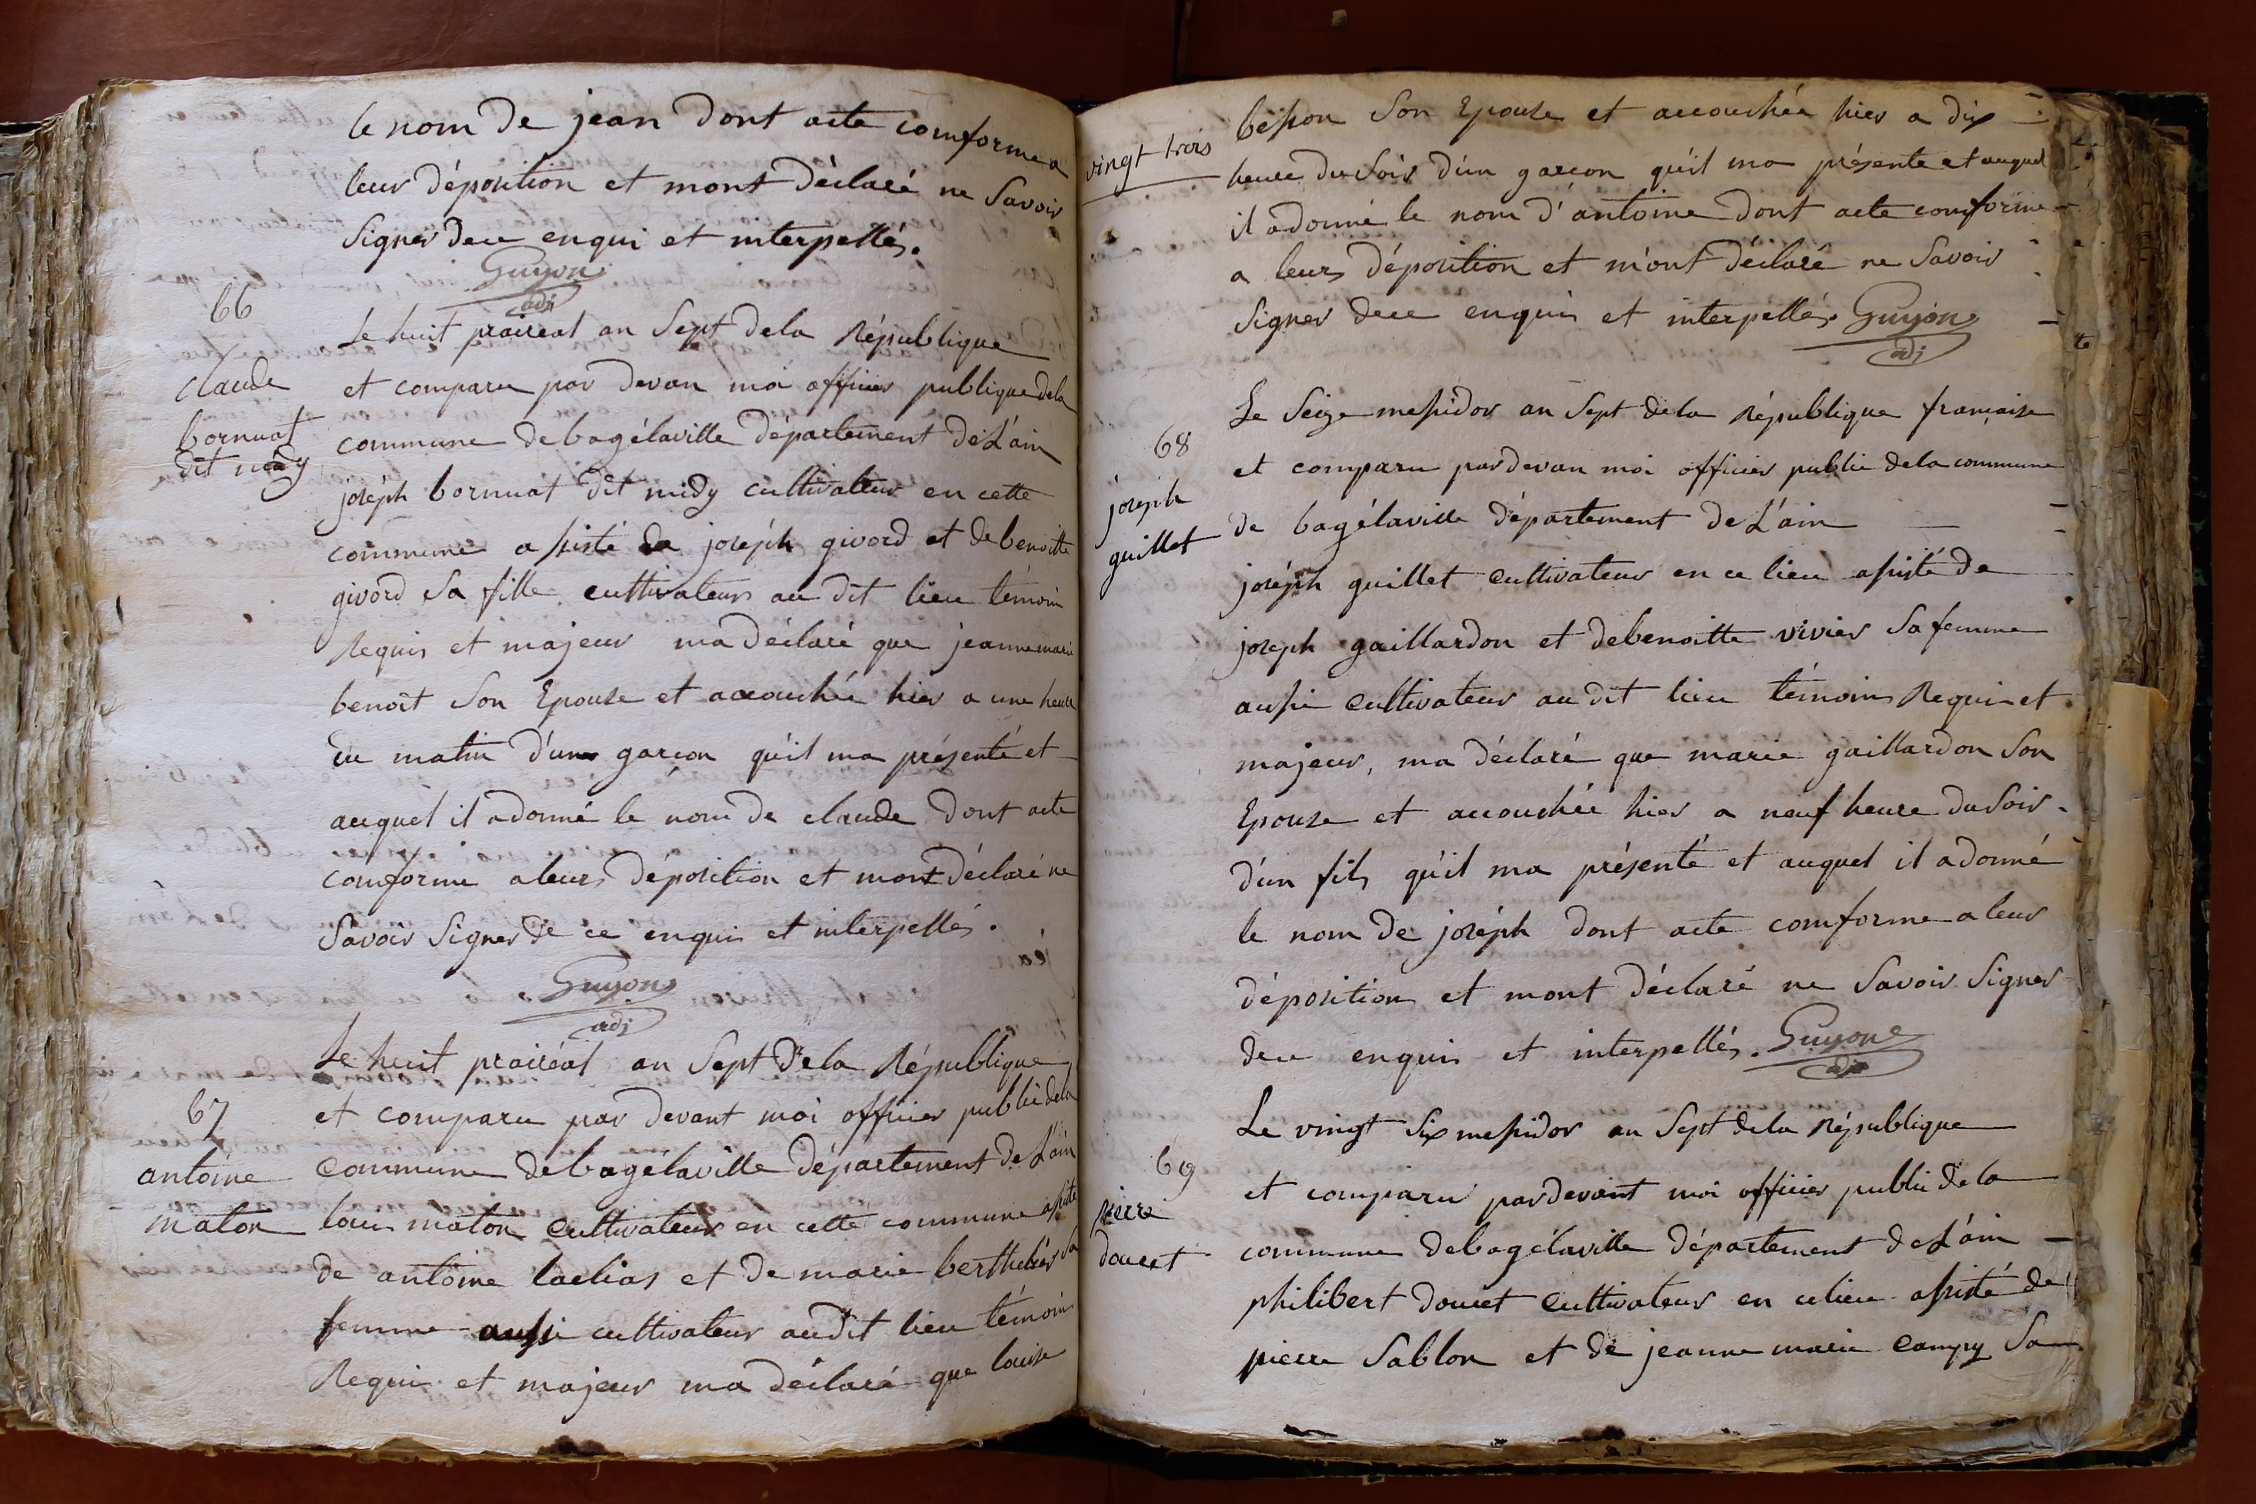 le nom de jean dont acte comforme a
leur déposition et mont déclaré ne Savoir
Signer de ce enqui et interpellés.
Guyon
adj
66
Le huit prairéal an Sept de la République
claude
et comparu par devan moi officier publique de la
bornuat
commune de bagélaville département de L'ain
dit midy
joséph bornuat dit midy cultivateur en cette
commune assisté de joséph givord et de benoitte
givord Sa fille cultivateur au dit lieu témoin
Requis et majeur ma déclaré que jeanne marie
benoit Son Epouse et accouchée hier a une heure
du matin d'un garçon qu'il ma présenté et
auquel il a donné le nom de claude dont acte
comforme a leurs déposition et mont déclaré ne
Savoir Signer de ce enquis et interpellés.
Guyon
adj
Le huit prairéal an Sept de la République
67
et comparu par devant moi officier public de la
antoine
commune de bagélaville département de L'ain
maton
louis maton cultivateur en cette commune assisté
de antoine laclias et de marie berthelier Sa
femme aussi cultivateur audit lieu témoin
Requis et majeur ma déclaré que louise
vingt trois
besson Son Epouse et accouchée hier a dix
heure du Soir d'un garçon qu'il ma présente et auquel
il a donné le nom d'antoine dont acte comforme
a leurs déposition et m'ont déclaré ne Savoir
Signer de ce enquis et interpellés. Guyon
adj
Le Seize messidor an Sept de la République française
68
et comparu par devan moi officier public de la commune
joseph
de bagélaville département de L'ain
guillet
joséph guillet cultivateur en ce lieu assisté de
joseph gaillardon et de benoitte vivier Sa femme
aussi cultivateur au dit lieu témoins Requis et
majeur, ma déclaré que marie gaillardon Son
Epouse et accouchée hier a neuf heure du Soir
d'un fils qu'il ma présenté et auquel il a donné
le nom de joséph dont acte comforme a leur
déposition et mont déclaré ne Savoir Signer
de ce enquis et interpellés. Guyon
adj
Le vingt Six messidor an Sept de la République
69
et comparu par devant moi officier public de la
pierre
doucet
commune de bagélaville département de L'ain
philibert doucet cultivateur en ce lieu assisté de
pierre Sablon et de jeanne marie Campy Sa